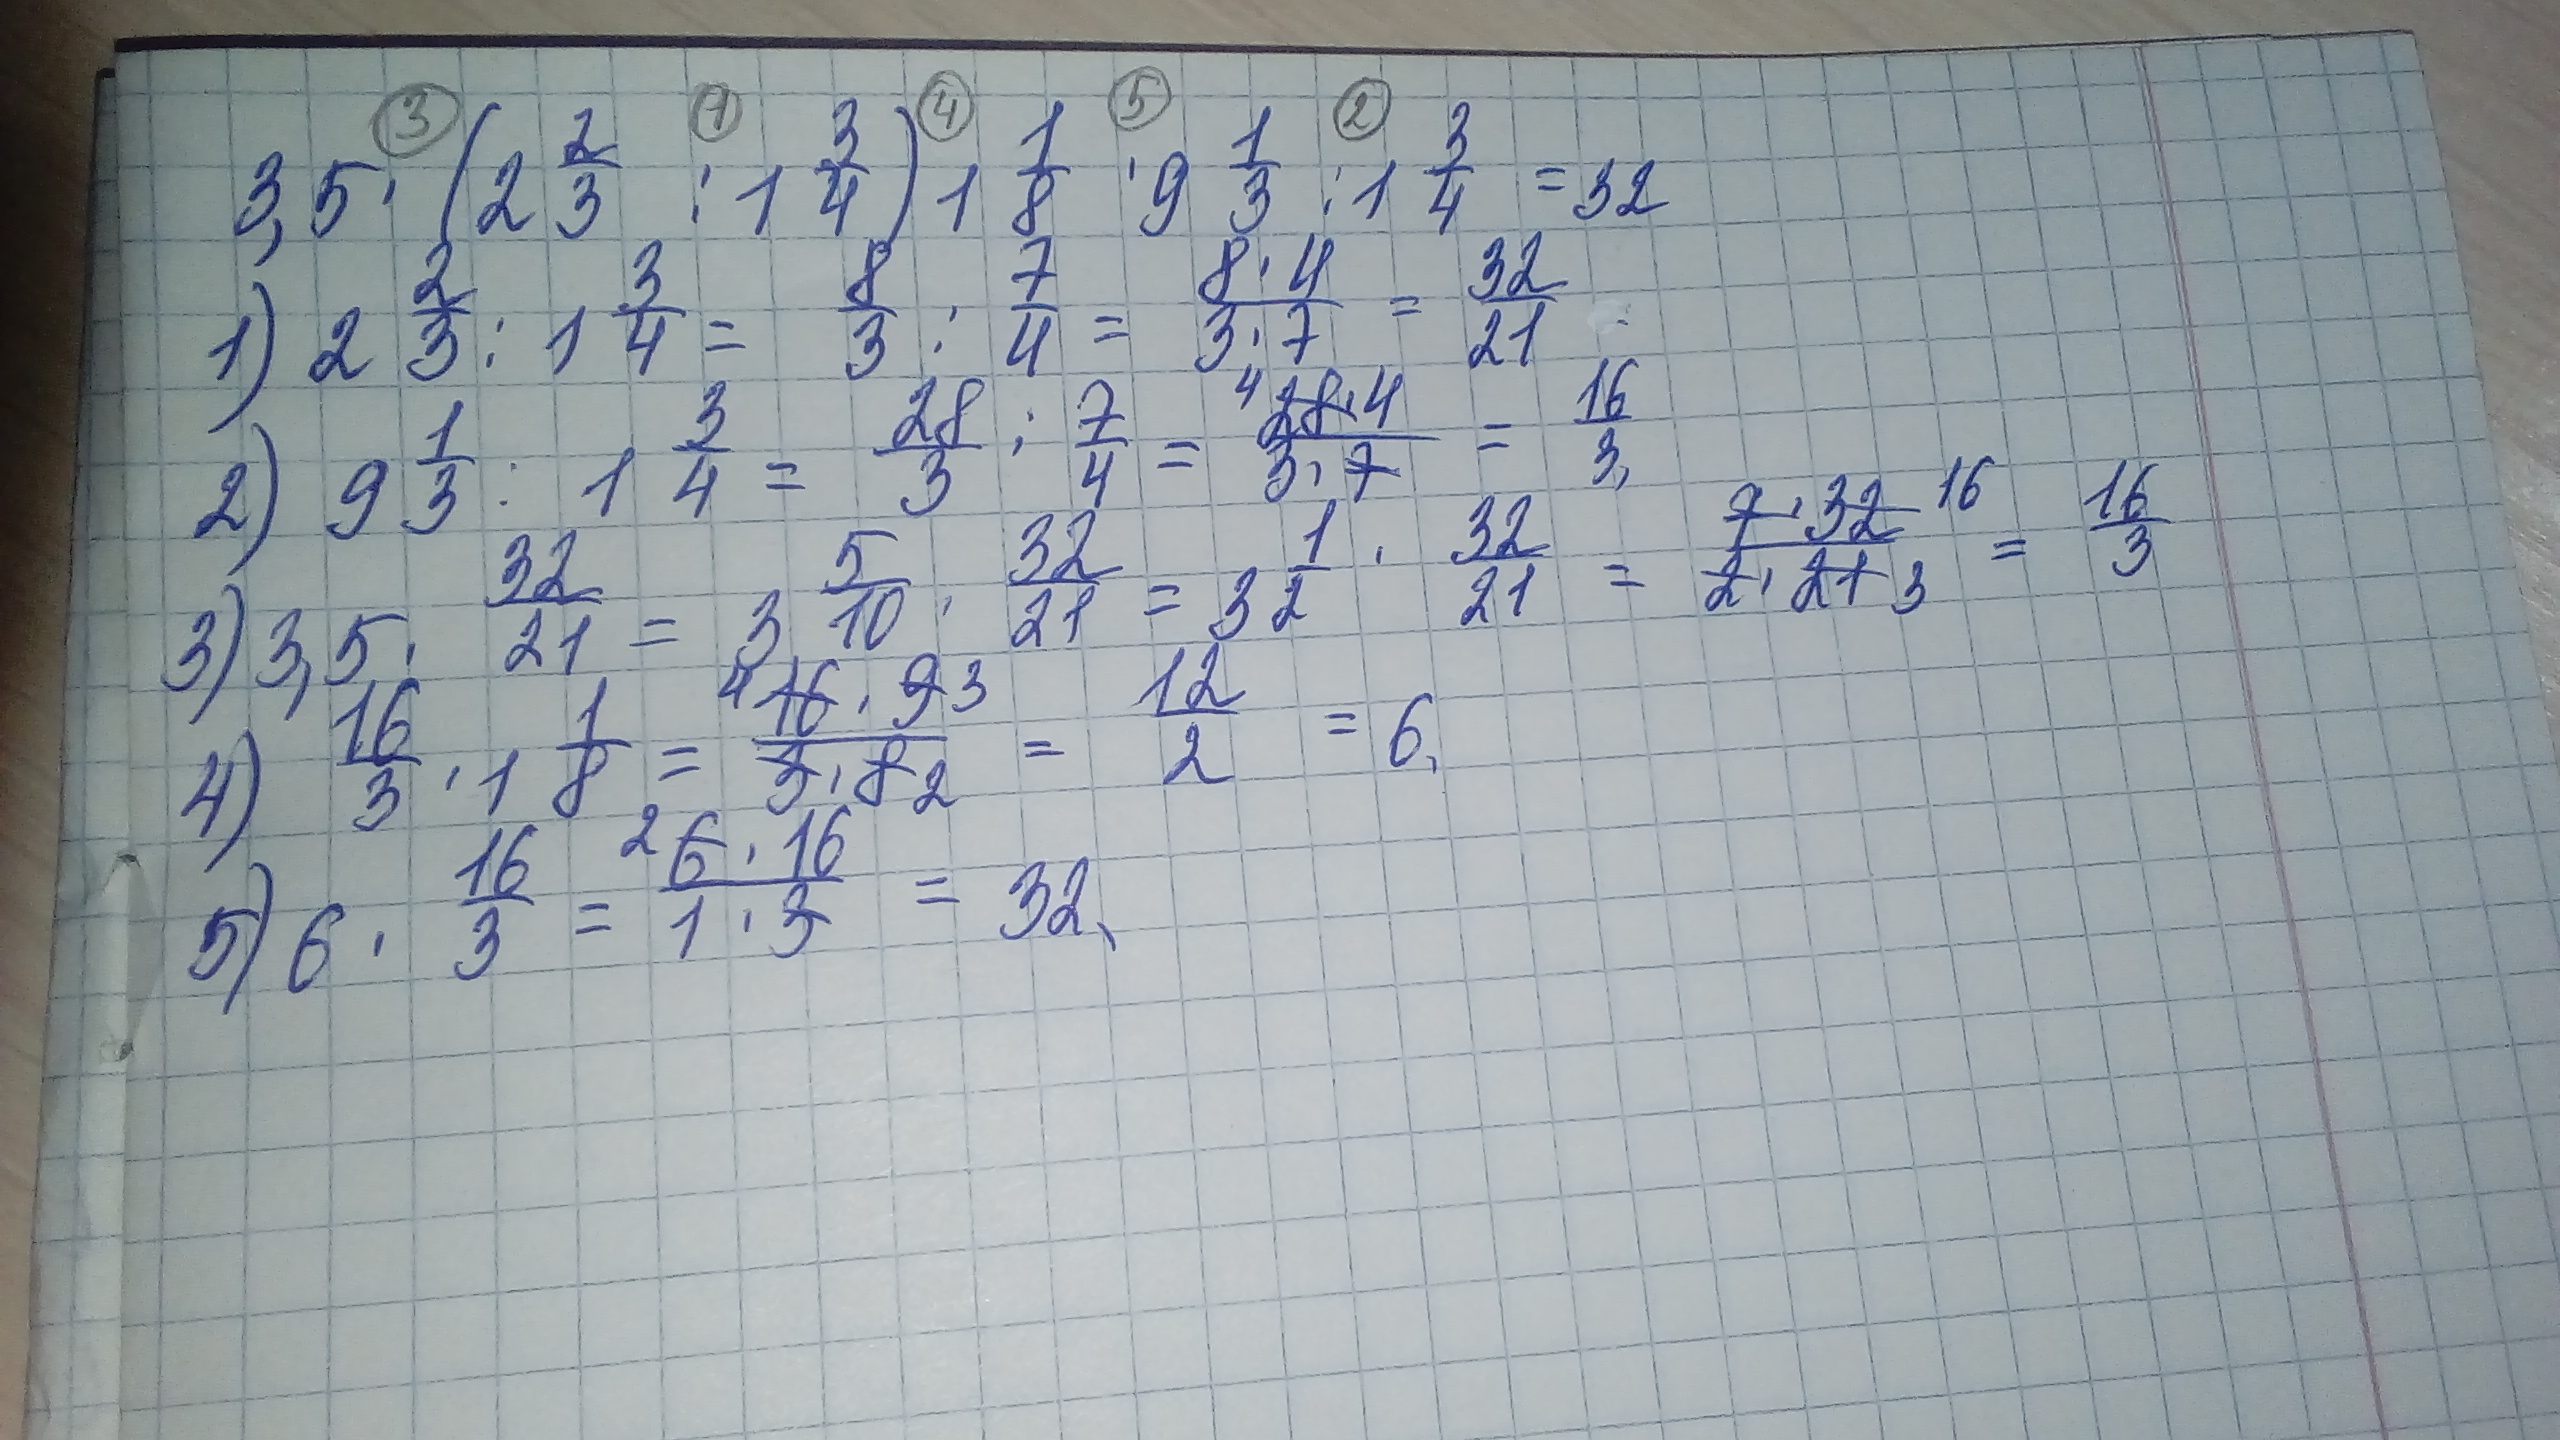 ③ ① ④ ⑤ ②
3,5 · (2 2/3 : 1 3/4) 1 1/8 · 9 1/3 : 1 3/4 = 32
1) 2 2/3 : 1 3/4 = 8/3 : 7/4 = 8·4/3·7 = 32/21
2) 9 1/3 : 1 3/4 = 28/3 : 7/4 = 4 28·4/3·7 = 16/3.
3) 3,5 · 32/21 = 3 5/10 · 32/21 = 3 1/2 · 32/21 = 7·32 16/2·21 3 = 16/3
4) 16/3 · 1 1/8 = 4 16·9 3/3·8 2 = 12/2 = 6.
5) 6 · 16/3 = 2 6·16/1·3 = 32.